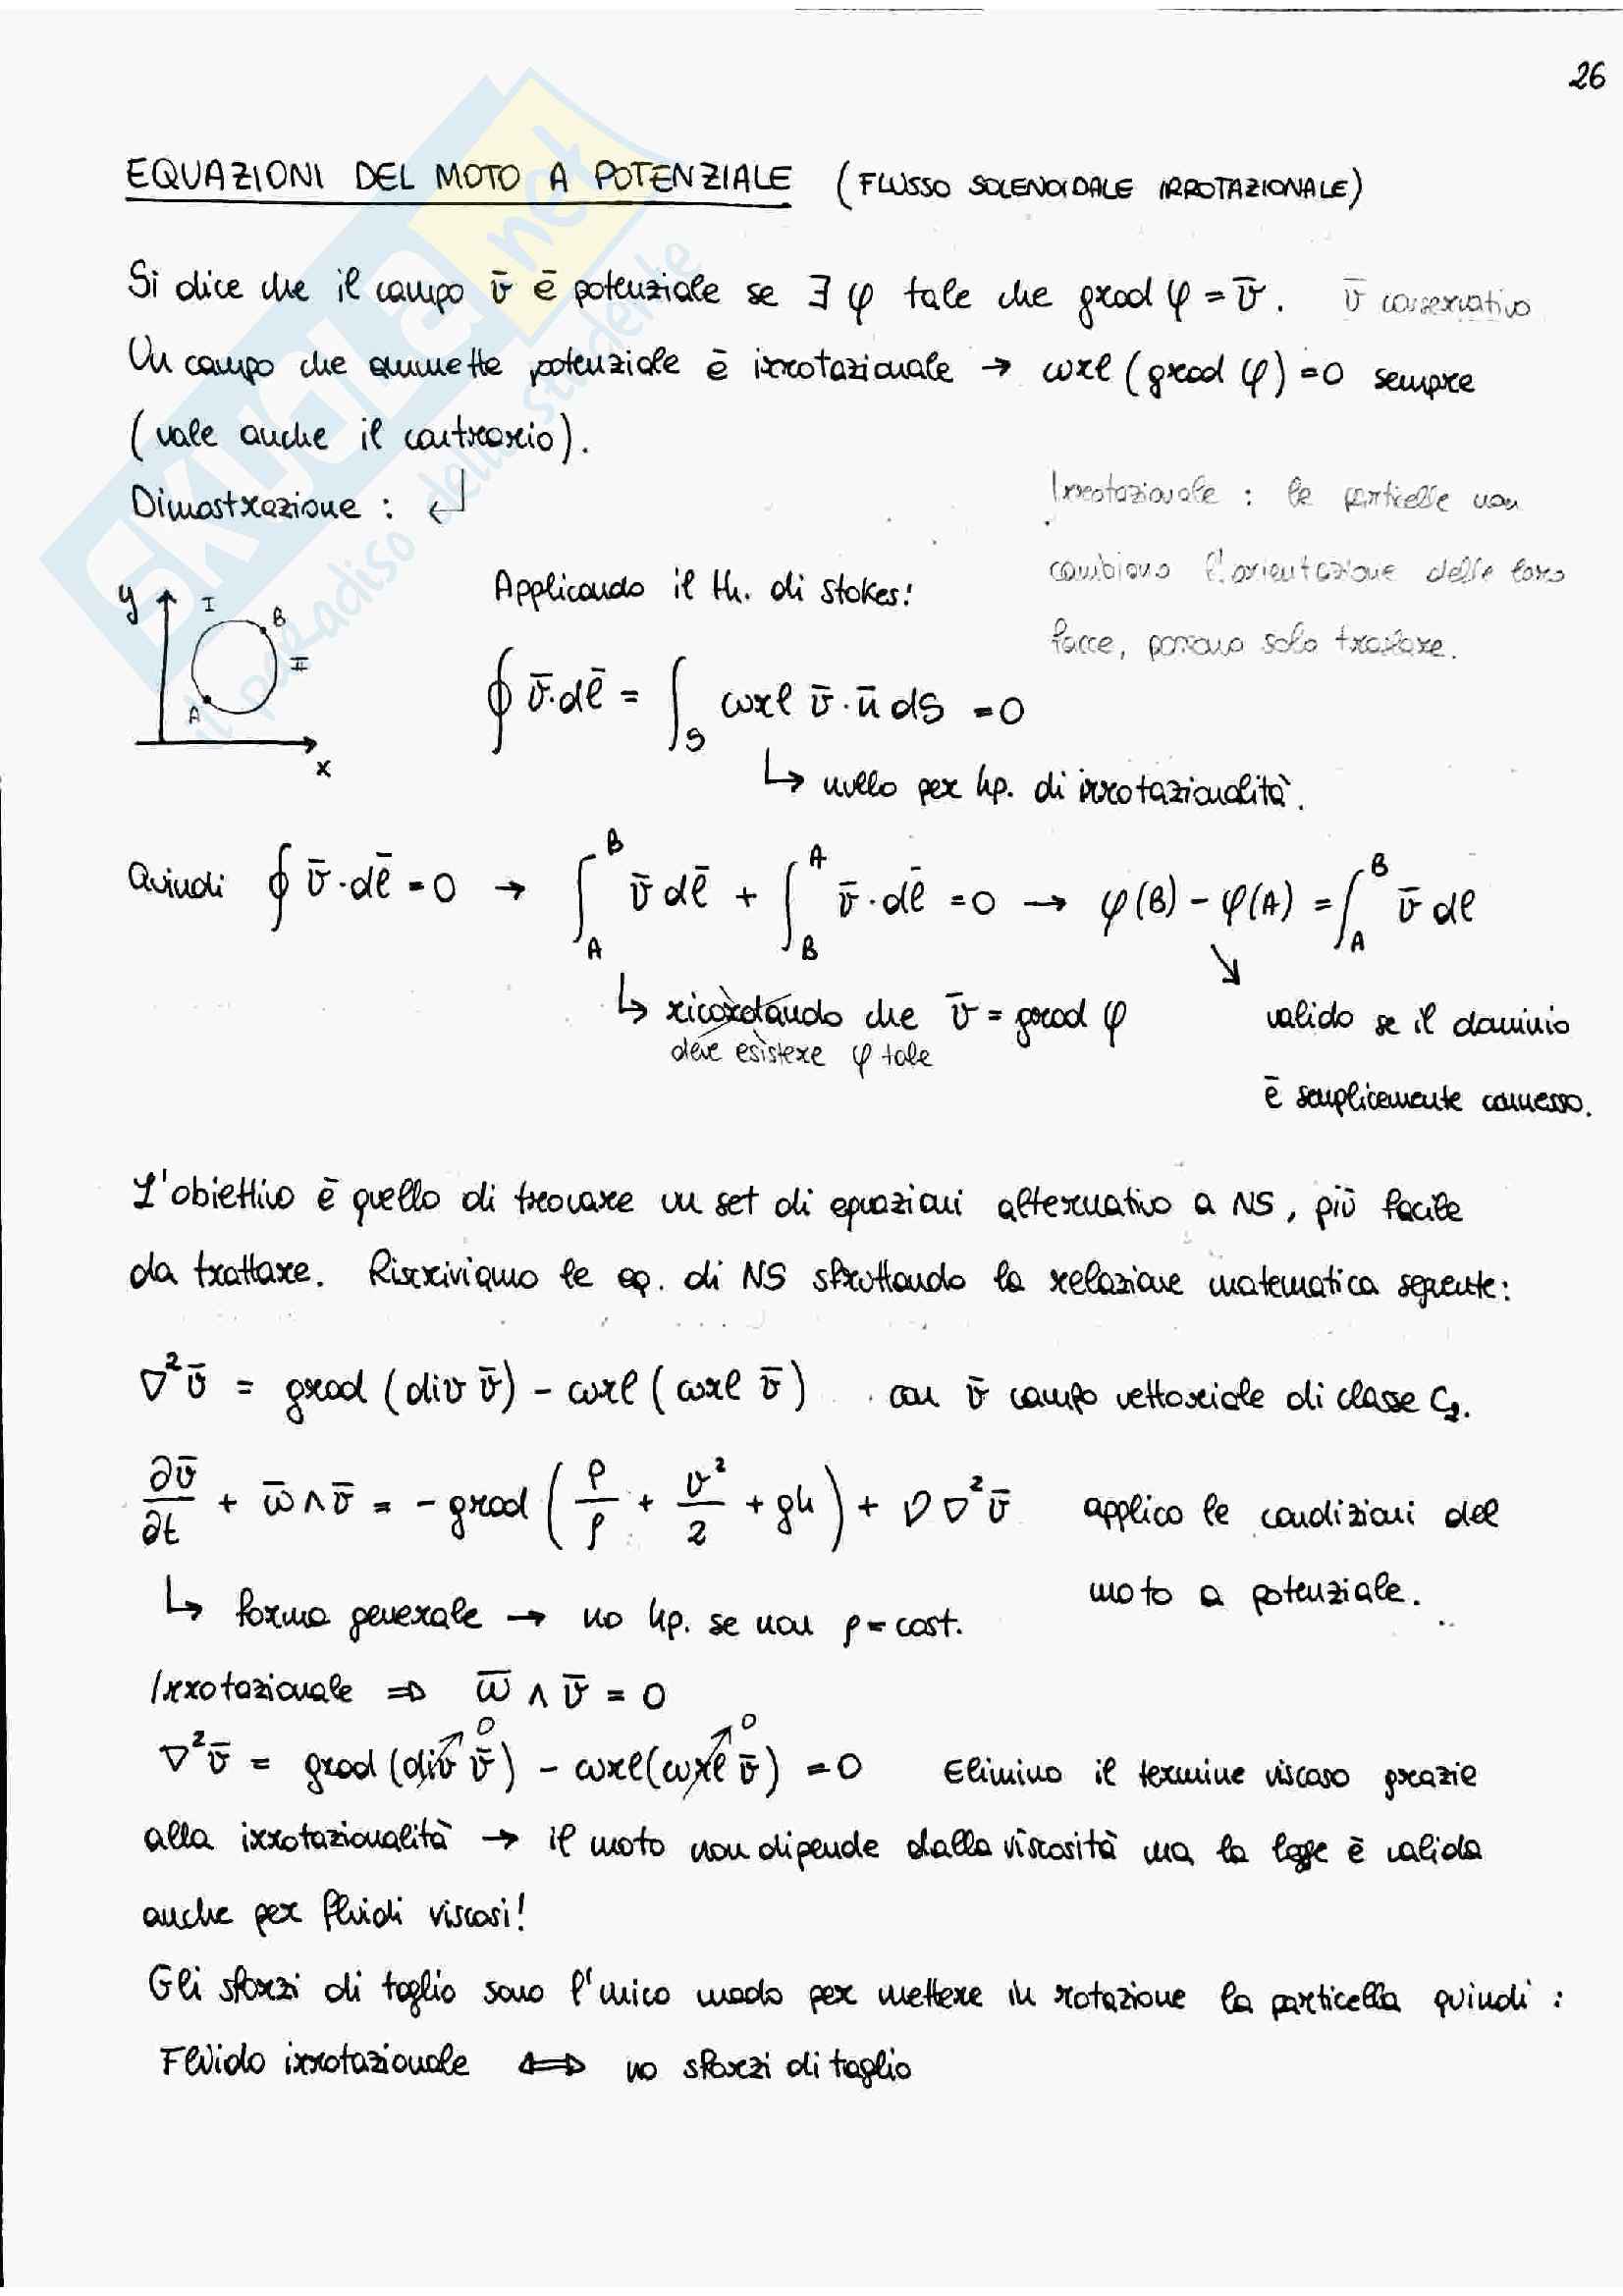 26
EQUAZIONI DEL MOTO A POTENZIALE (FLUSSO SOLENOIDALE IRROTAZIONALE)
Si dice che il campo v̄ è potenziale se ∃ φ tale che grad φ = v̄. v̄ conservativo
Un campo che ammette potenziale è irrotazionale → curl (grad φ) = 0 sempre
(vale anche il contrario).
Dimostrazione : ↲
Irrotazionale : le particelle non
cambiano l'orientazione delle loro
facce, possono solo traslare.
y I B II A x
Applicando il th. di Stokes:
∮ v̄·dl̄ = ∫_S curl v̄·n̄ dS = 0
↳ nullo per hp. di irrotazionalità.
Quindi ∮ v̄·dl̄ = 0 → ∫_A^B v̄ dl̄ + ∫_B^A v̄·dl̄ = 0 → φ(B) - φ(A) = ∫_A^B v̄ dl
↳ ricordando che v̄ = grad φ
deve esistere φ tale
↘ valido se il dominio
è semplicemente connesso.
L'obiettivo è quello di trovare un set di equazioni alternativo a NS, più facile
da trattare. Riscriviamo le eq. di NS sfruttando la relazione matematica seguente:
∇²v̄ = grad (div v̄) - curl (curl v̄) con v̄ campo vettoriale di classe C₂.
∂v̄/∂t + ω̄ ∧ v̄ = - grad (P/ρ + v²/2 + gh) + ν ∇²v̄ applico le condizioni del
moto a potenziale.
↳ forma generale → no hp. se non ρ = cost.
Irrotazionale ⇒ ω̄ ∧ v̄ = 0
∇²v̄ = grad (div v̄)↗0 - curl(curl v̄)↗0 = 0 Elimino il termine viscoso grazie
alla irrotazionalità → il moto non dipende dalla viscosità ma la legge è valida
anche per fluidi viscosi!
Gli sforzi di taglio sono l'unico modo per mettere in rotazione la particella quindi :
Fluido irrotazionale ⇔ no sforzi di taglio
SKUOLA.net
il paradiso dello studente